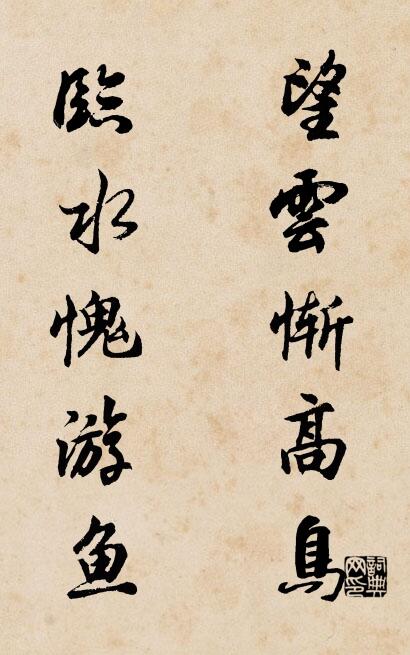 望雲慚高鳥
臨水愧游魚
詞典网印